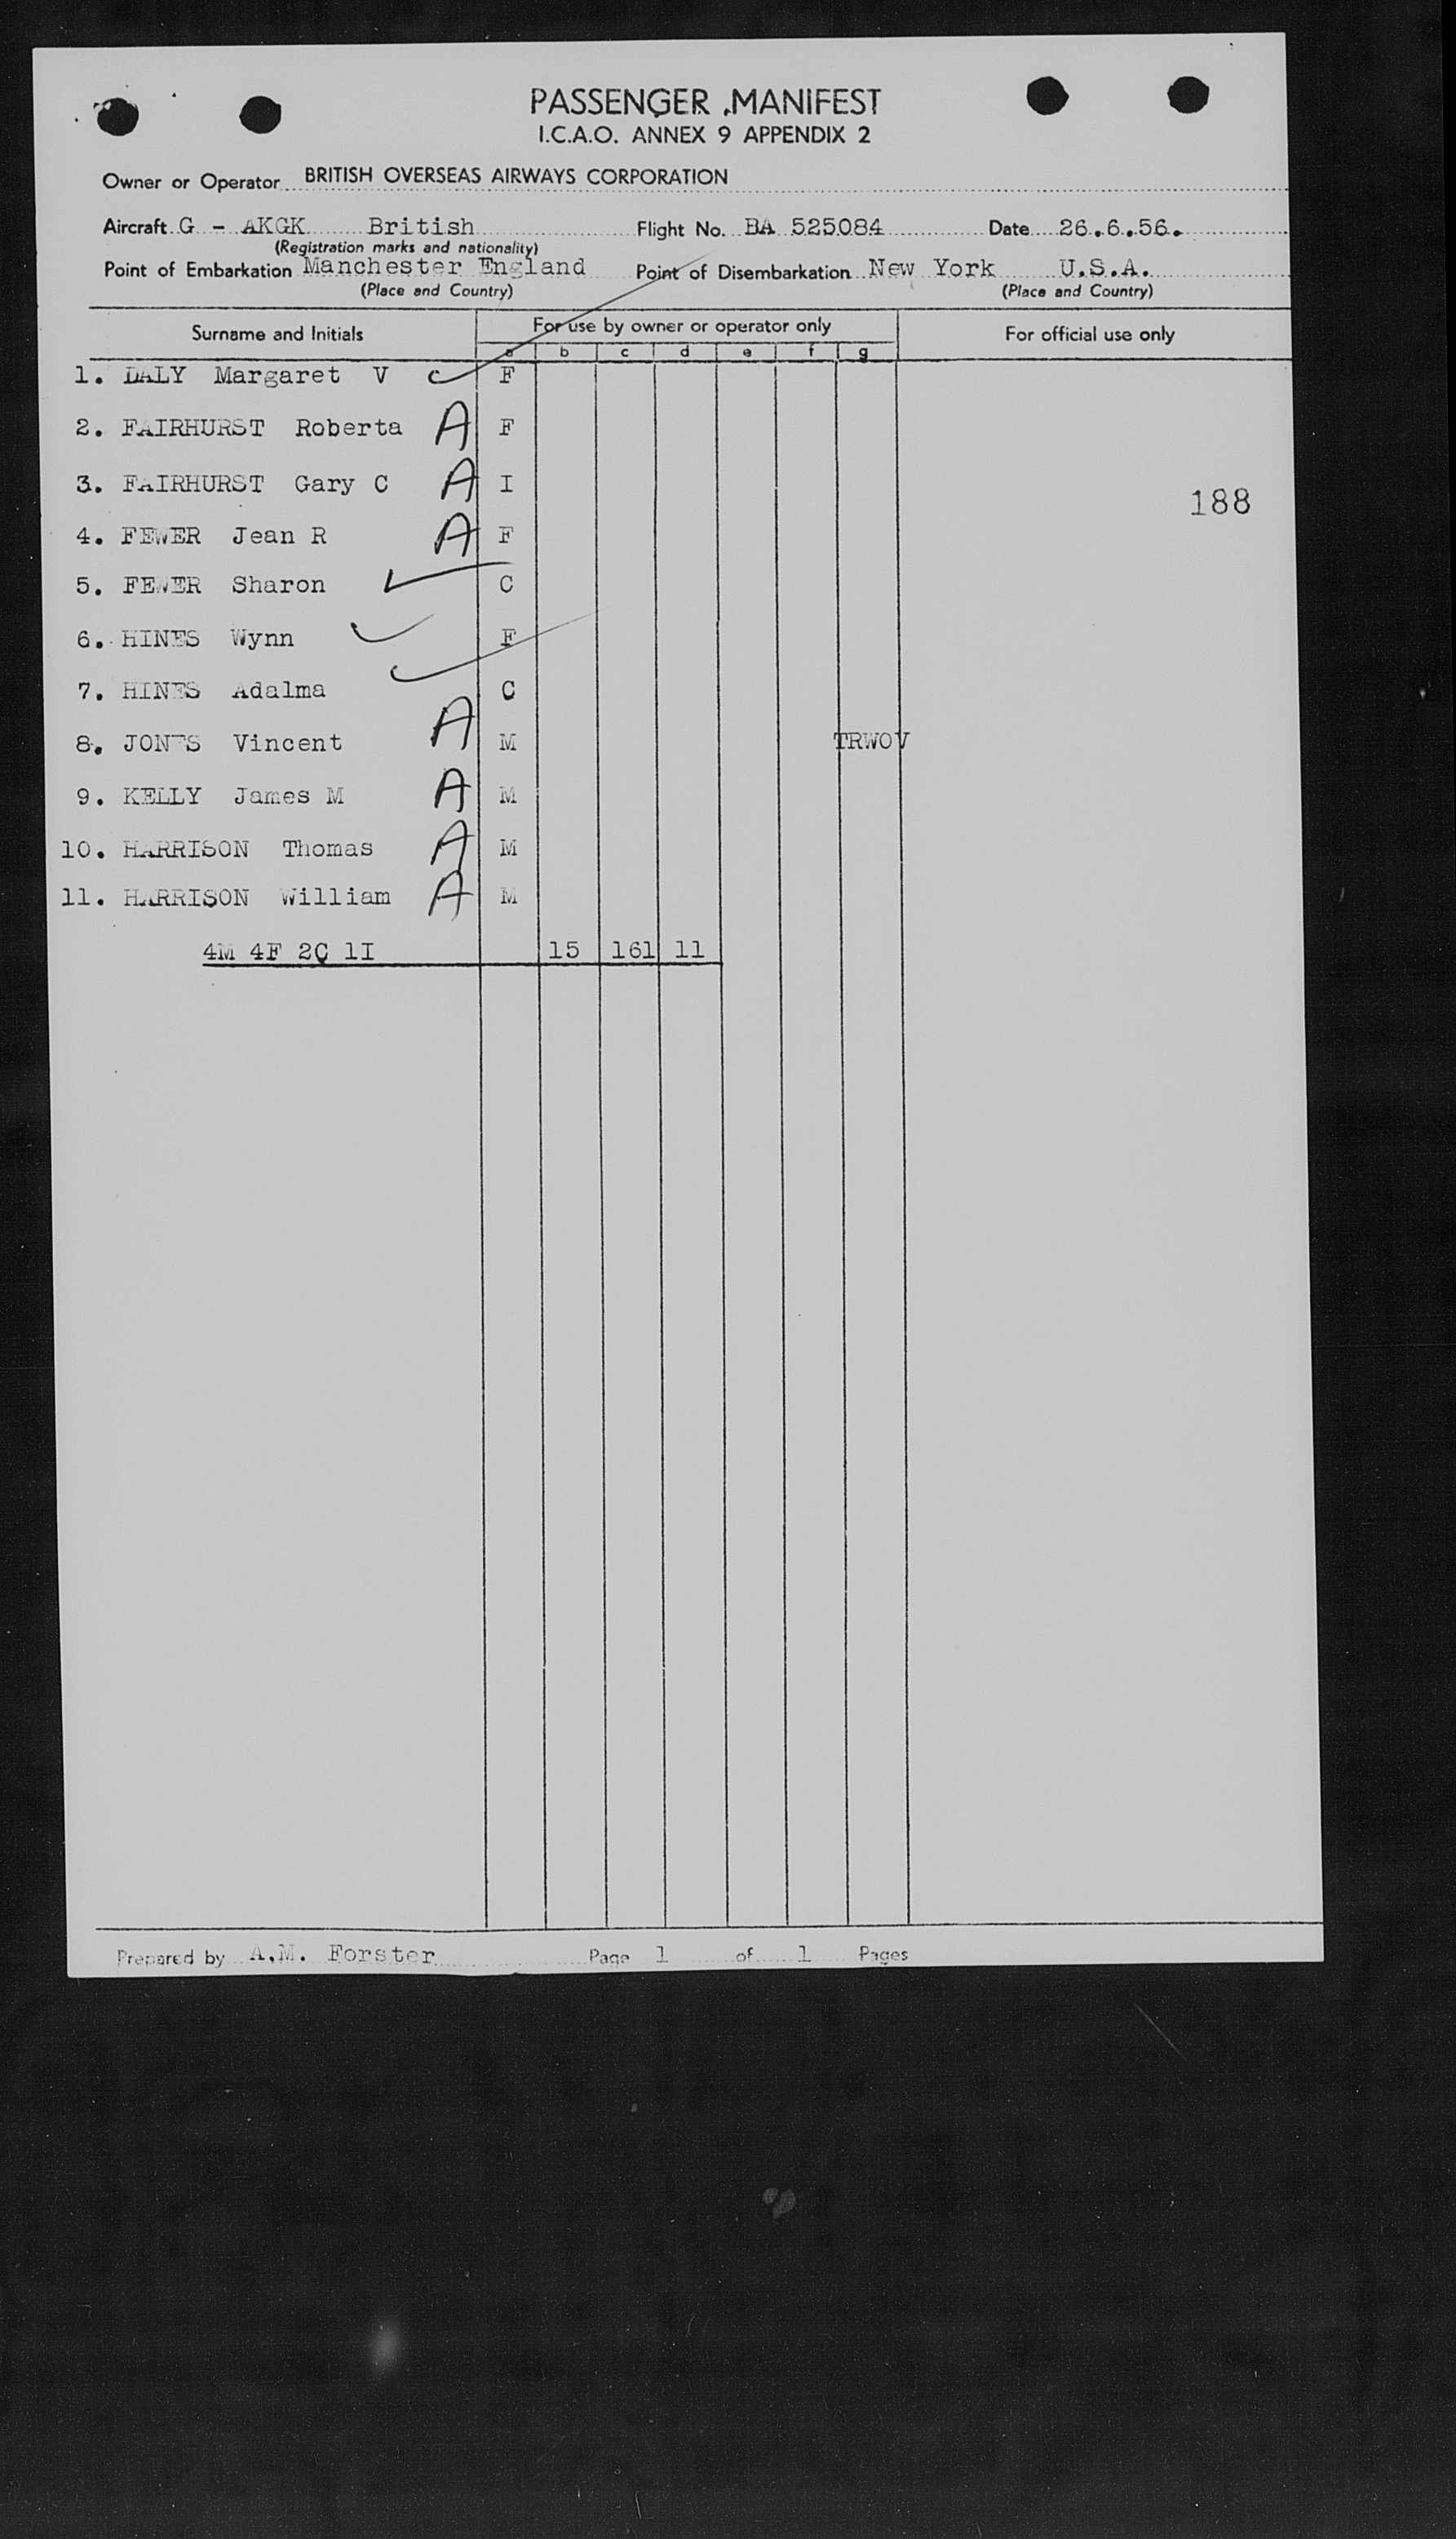 PASSENGER MANIFEST
I.C.A.O. ANNEX 9 APPENDIX 2
Owner or Operator BRITISH OVERSEAS AIRWAYS CORPORATION
Aircraft G - AKGK British Flight No. BA 525084 Date 26.6.56.
(Registration marks and nationality)
Point of Embarkation Manchester England Point of Disembarkation New York U.S.A.
(Place and Country) (Place and Country)
Surname and Initials For use by owner or operator only For official use only
a b c d e f g
1. DALY Margaret V F
2. FAIRHURST Roberta A F
3. FAIRHURST Gary C A I
188
4. FEWER Jean R A F
5. FEWER Sharon C
6. HINES Wynn F
7. HINES Adalma C
8. JONES Vincent A M TRWOV
9. KELLY James M A M
10. HARRISON Thomas A M
11. HARRISON William A M
4M 4F 2C 1I 15 161 11
Prepared by A.M. Forster Page 1 of 1 Pages